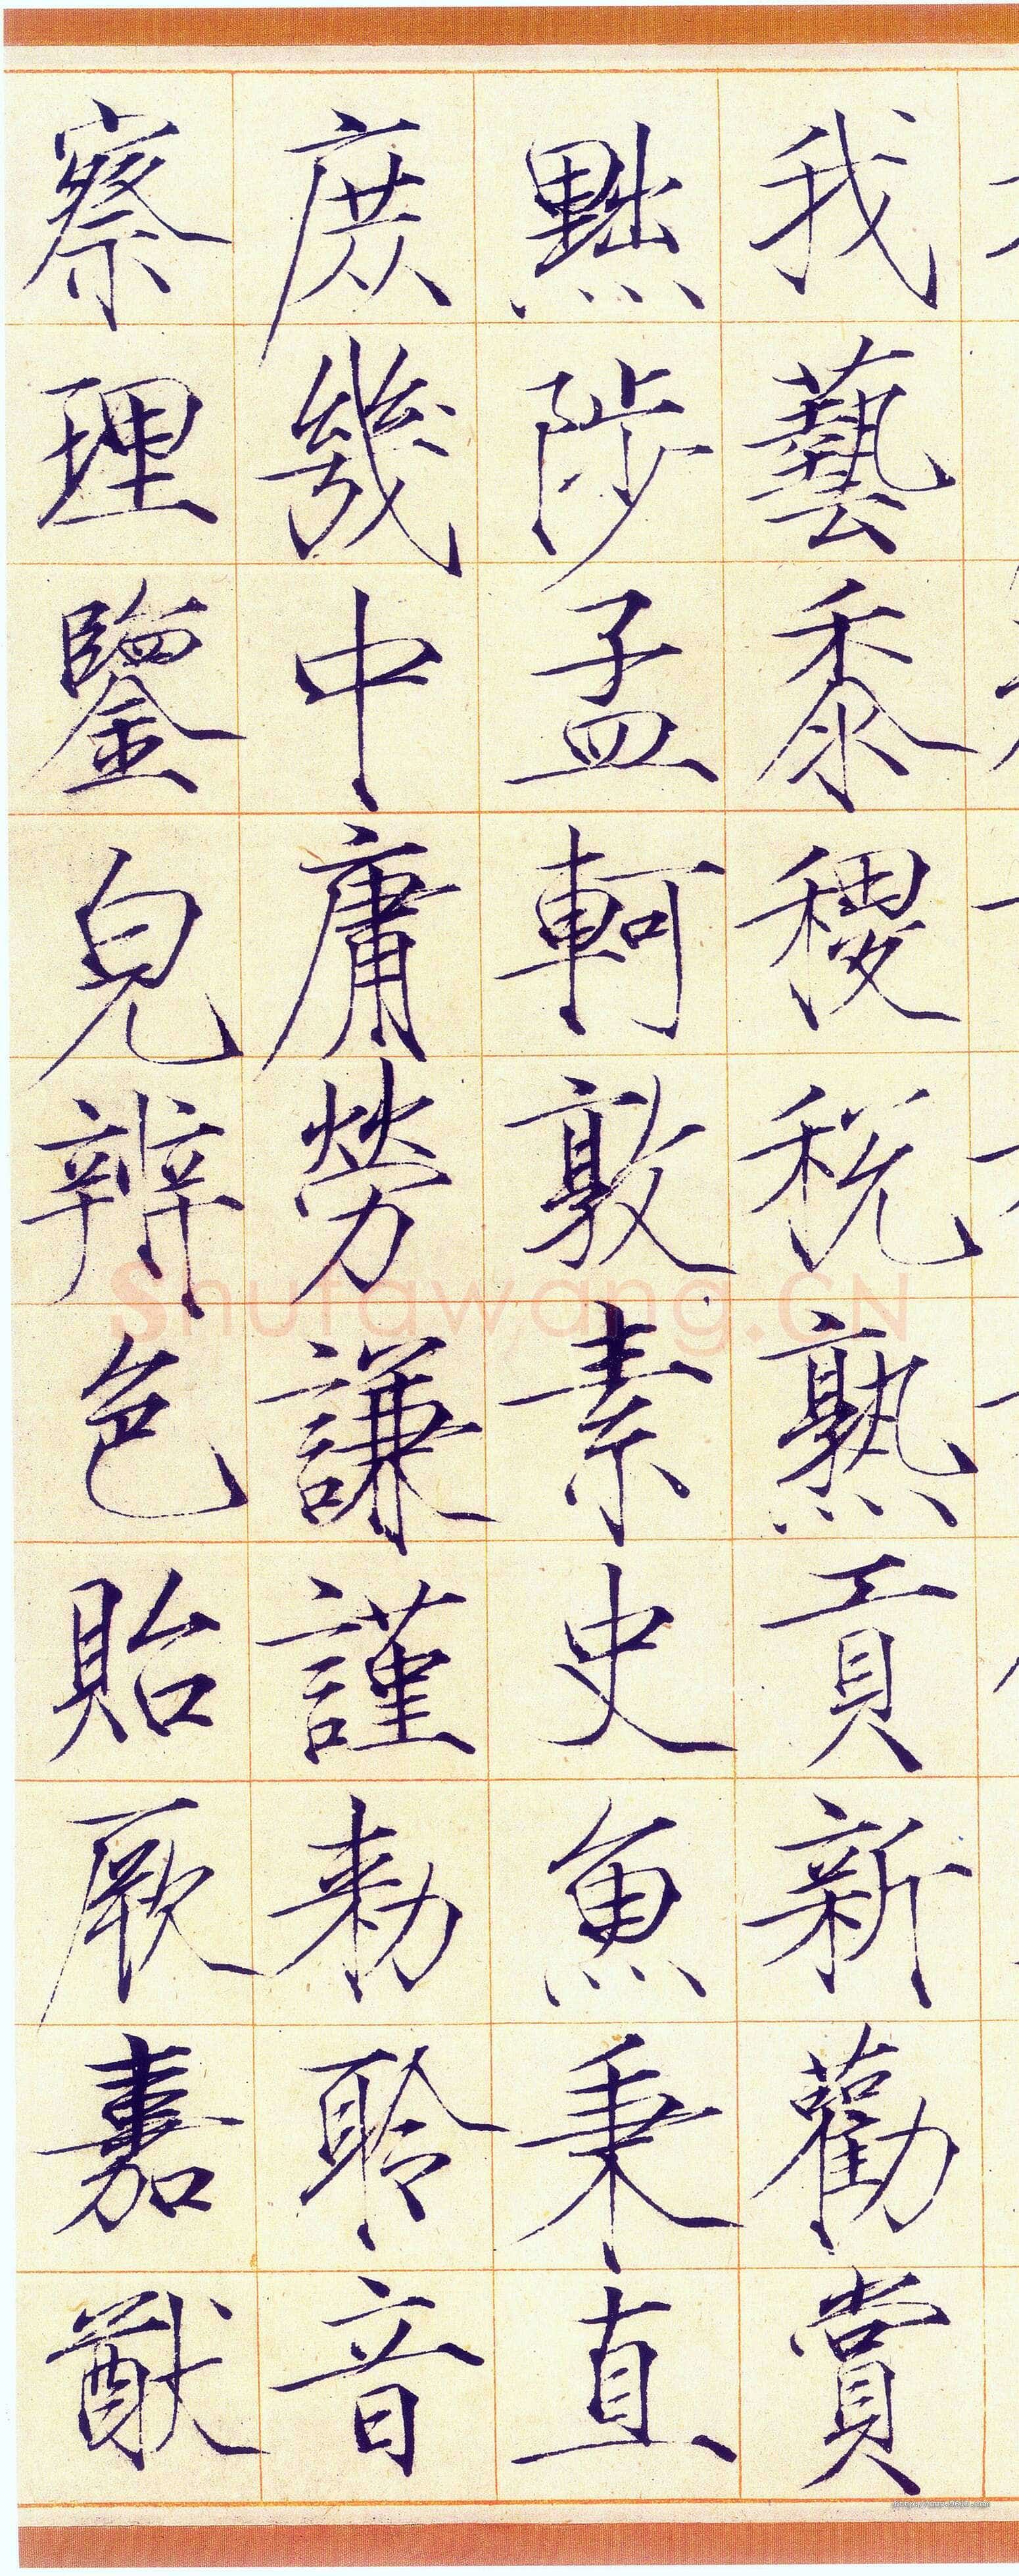 我藝黍稷稅熟貢新勸賞
黜陟孟軻敦素史魚秉直
庶幾中庸勞謙謹勑聆音
察理鑒皃辨色貽厥嘉猷
Shufawang.CN